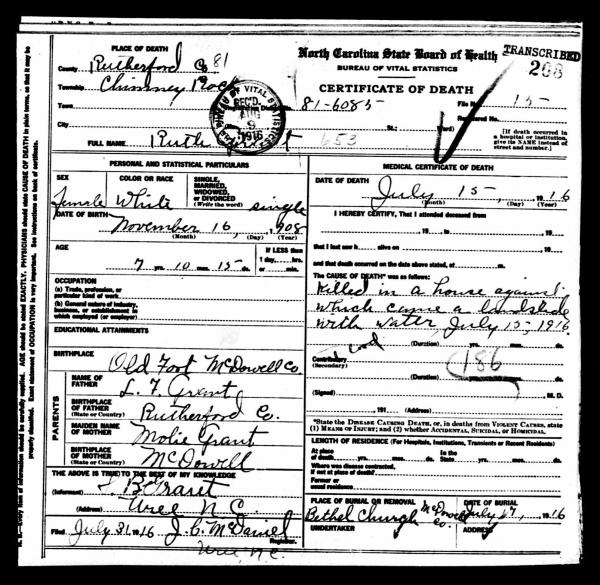 PLACE OF DEATH
County Rutherford Co 81
Township Chimney Rock
Town
City
North Carolina State Board of Health
BUREAU OF VITAL STATISTICS
CERTIFICATE OF DEATH
TRANSCRIBED
208
81-6085
File No. 15
Registered No.
St.; Ward)
[If death occurred in a hospital or institution, give its NAME instead of street and number.]
BUREAU OF VITAL STATISTICS
REC'D.
AUG
9
1916
FULL NAME Ruth
653
PERSONAL AND STATISTICAL PARTICULARS
SEX
female
COLOR OR RACE
White
SINGLE, MARRIED, WIDOWED, OR DIVORCED
(Write the word)
single
DATE OF BIRTH
November 16, 1908
(Month) (Day) (Year)
AGE
7 yrs. 10 mos. 15 ds.
IF LESS than 1 day, hrs. or min.
OCCUPATION
(a) Trade, profession, or particular kind of work
(b) General nature of industry, business, or establishment in which employed (or employer)
EDUCATIONAL ATTAINMENTS
BIRTHPLACE
Old Fort McDowell Co.
PARENTS
NAME OF FATHER
L. F. Grant
BIRTHPLACE OF FATHER
(State or Country)
Rutherford Co.
MAIDEN NAME OF MOTHER
Molie Grant
BIRTHPLACE OF MOTHER
(State or Country)
McDowell
THE ABOVE IS TRUE TO THE BEST OF MY KNOWLEDGE
(Informant) B Grant
(Address) Uree N.C.
Filed July 31, 1916 J. C. McDaniel
Registrar.
Uree N.C.
MEDICAL CERTIFICATE OF DEATH
DATE OF DEATH
July 15, 1916
(Month) (Day) (Year)
I HEREBY CERTIFY, That I attended deceased from
, 19 , to , 19
that I last saw h alive on , 19
and that death occurred on the date above stated, at m.
The CAUSE OF DEATH* was as follows:
Killed in a house against
which came a landslide
with water, July 15, 1916
(Duration) yrs. mos. ds.
Contributory
(Secondary)
186
(Duration) yrs. mos. ds.
(Signed) , M. D.
, 191 . (Address)
*State the DISEASE CAUSING DEATH, or, in deaths from VIOLENT CAUSES, state (1) MEANS OF INJURY; and (2) whether ACCIDENTAL, SUICIDAL, or HOMICIDAL.
LENGTH OF RESIDENCE (For Hospitals, Institutions, Transients or Recent Residents)
At place of death yrs. mos. ds.
In the State yrs. mos. ds.
Where was disease contracted, if not at place of death?
Former or usual residence
PLACE OF BURIAL OR REMOVAL
Bethel Church McDowell Co.
DATE OF BURIAL
July 17, 1916
UNDERTAKER
ADDRESS